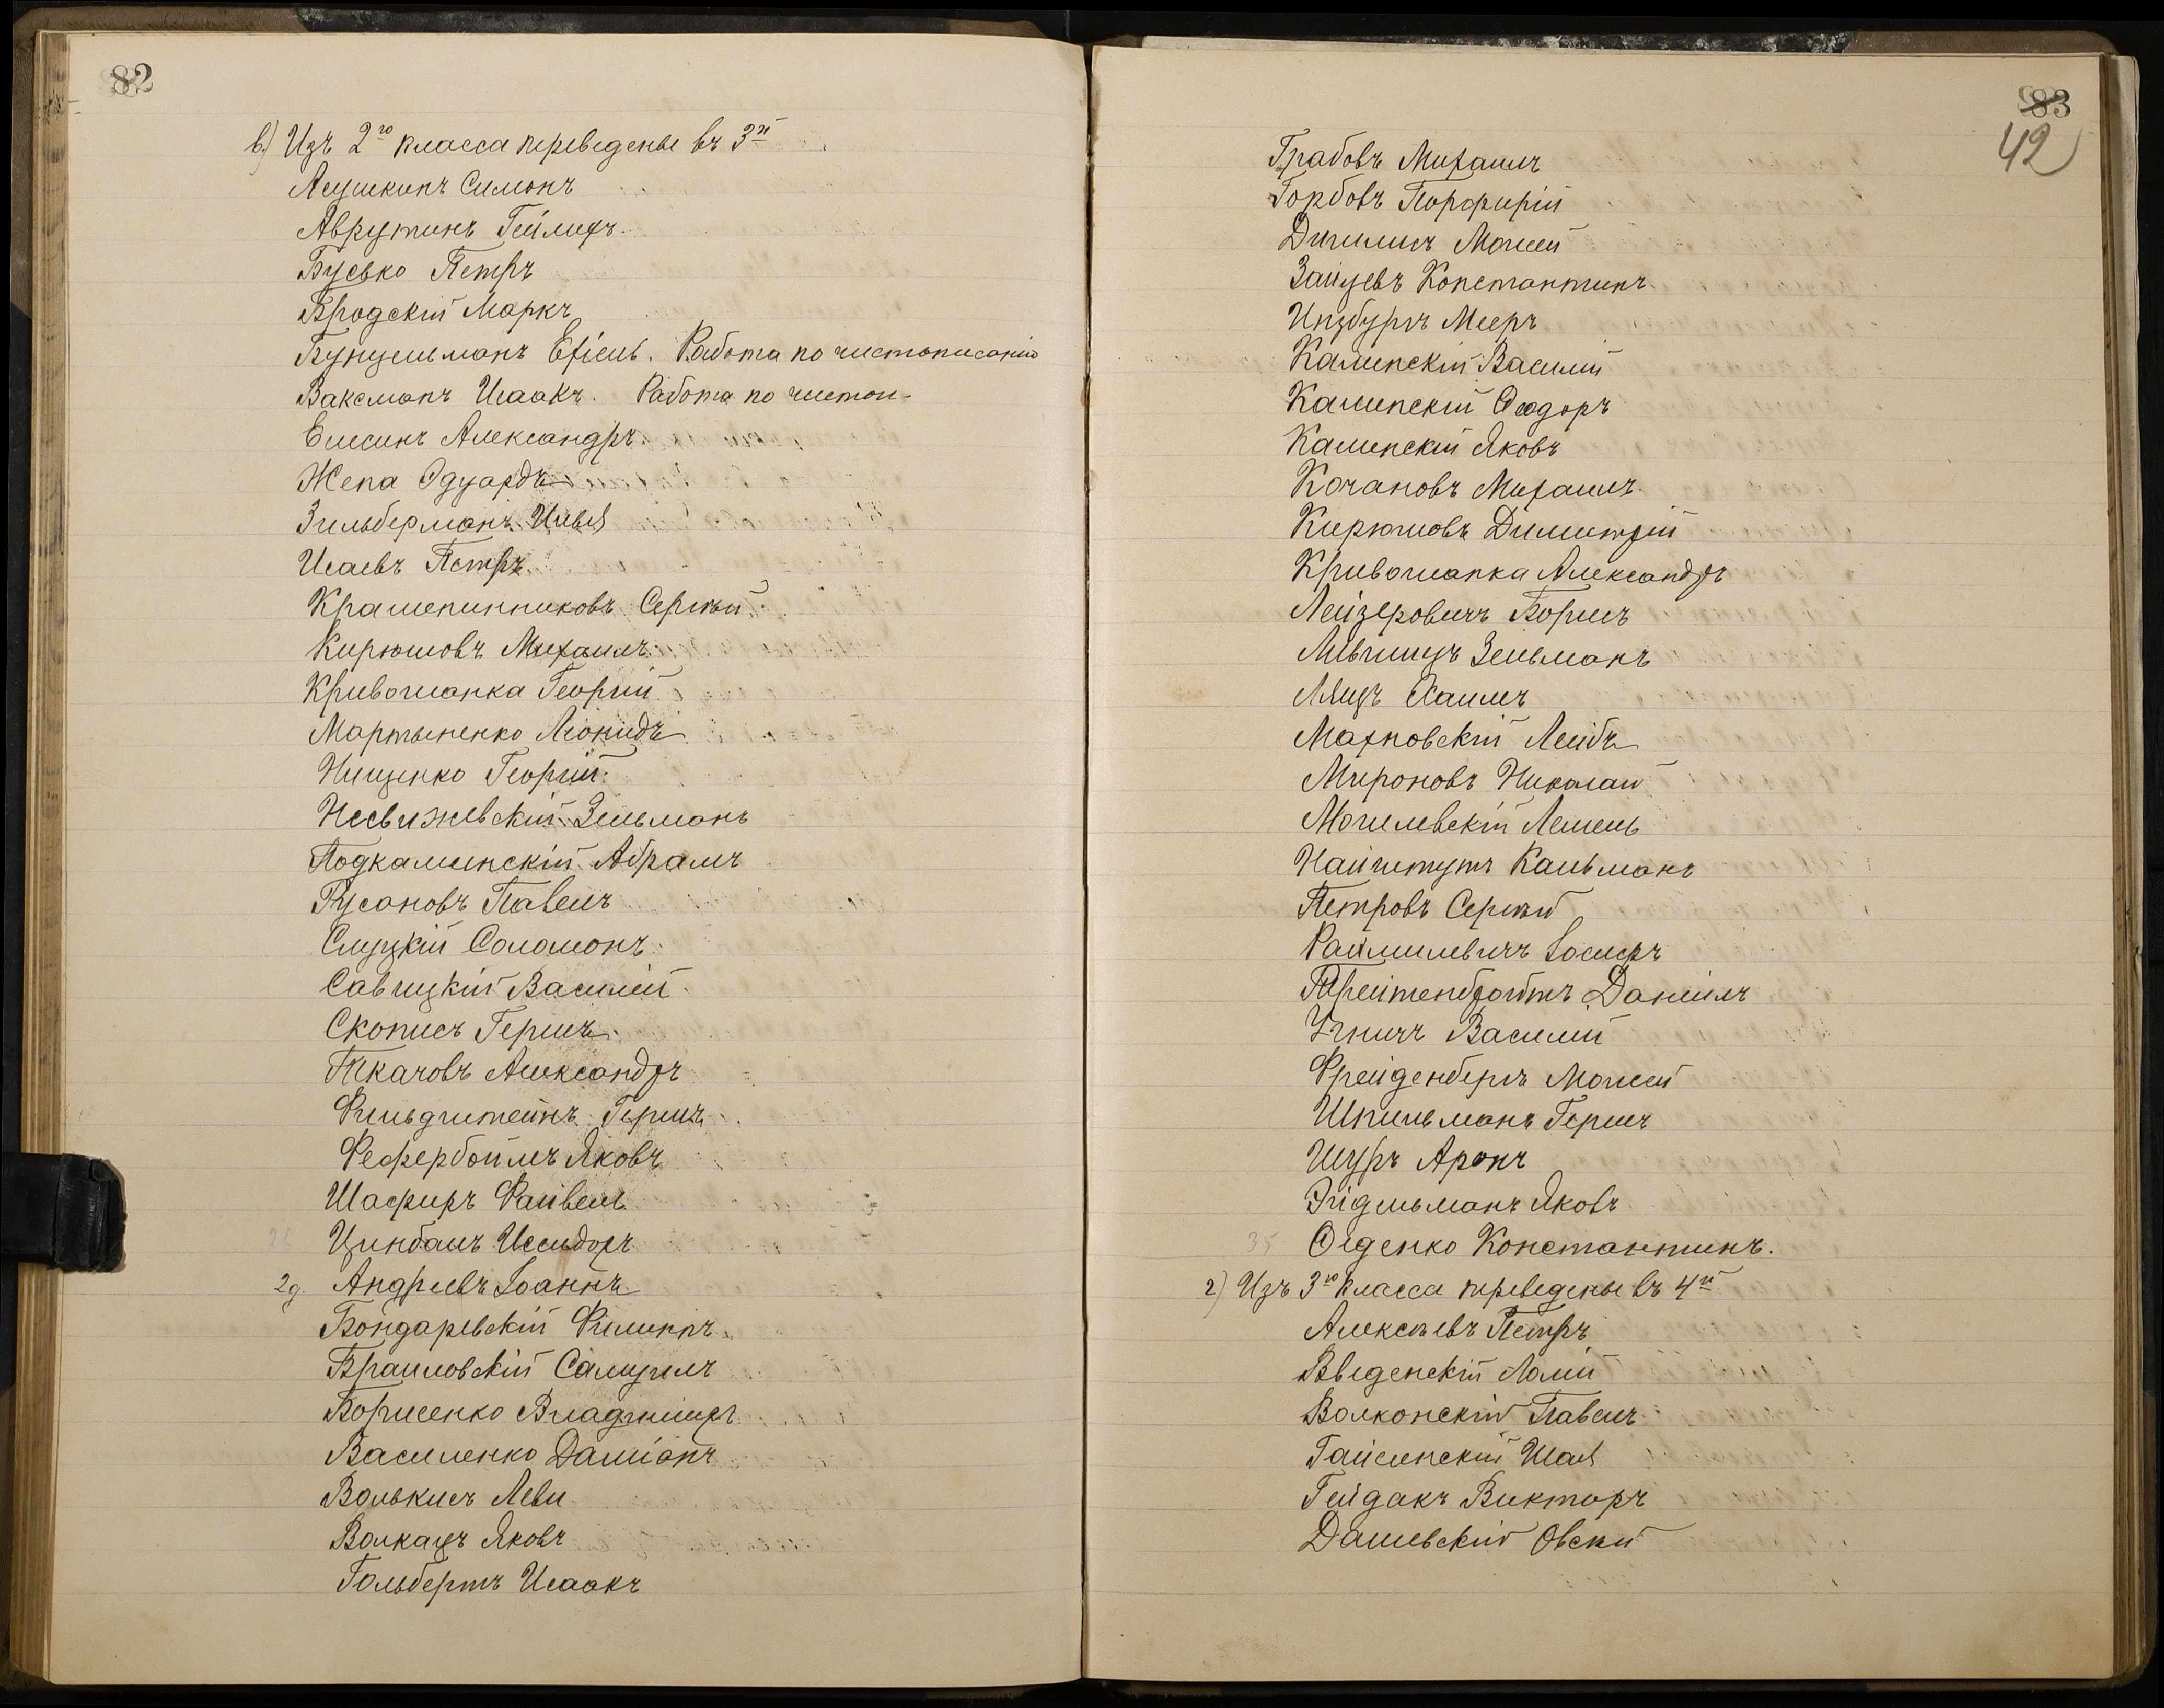 82
в) Изъ 2го класса переведены въ 3й
Ацушкинъ Симонъ
Аврутинъ Геймихъ
Бусько Петръ
Бродскій Маркъ
Бунцельманъ Ехіель. Работа по чистописанію
Ваксманъ Исаакъ. Работа по чистоп-
Елисинъ Александръ
Жепа Эдуардъ
Зильберманъ Ившія
Исаевъ Петръ
Крашенинниковъ Сергѣй
Кирюшовъ Михаилъ
Кривошапка Георгій
Мартыненко Леонидъ
Нищенко Георгій
Несвижевскій Зельманъ
Подкаминскій Абрамъ
Русановъ Павелъ
Слуцкій Соломонъ
Савицкій Василій
Скописъ Гершъ
Ткачовъ Александръ
Фильдштейнъ Гершъ
Фефербоймъ Яковъ
Шафиръ Файвель
Цинбалъ Иссидоръ
2д. Андреевъ Іоаннъ
Бондаревскій Филиппъ
Браиловскій Самуилъ
Борисенко Владиміръ
Василенко Даміанъ
Волькисъ Леви
Волкацъ Яковъ
Гольбертъ Исаакъ
83
42
Грабовъ Михаилъ
Горбовъ Порфирій
Дигилисъ Моисей
Зайцевъ Константинъ
Инзбургъ Мееръ
Каминскій Василій
Каминскій Ѳеодоръ
Каминскій Яковъ
Кочановъ Михаилъ
Кирюшовъ Димитрій
Кривошапка Александръ
Лейзеровичъ Борисъ
Лившицъ Зельманъ
Ляцъ Хаимъ
Махновскій Лейбъ
Мироновъ Николай
Могилевскій Лемель
Найштутъ Кальманъ
Петровъ Сергѣй
Раймилевичъ Іосифъ
Трейтенбротъ Даніилъ
Угничъ Василій
Фрейденбергъ Моисей
Шпильманъ Гершъ
Шуръ Аронъ
Эйдельманъ Яковъ
35 Ѳеденко Константинъ.
г) Изъ 3го класса переведены въ 4й
Алексѣевъ Петръ
Введенскій Лолій
Волконскій Павелъ
Гайсинскій Шая
Гейдакъ Викторъ
Дашевскій Овсѣй